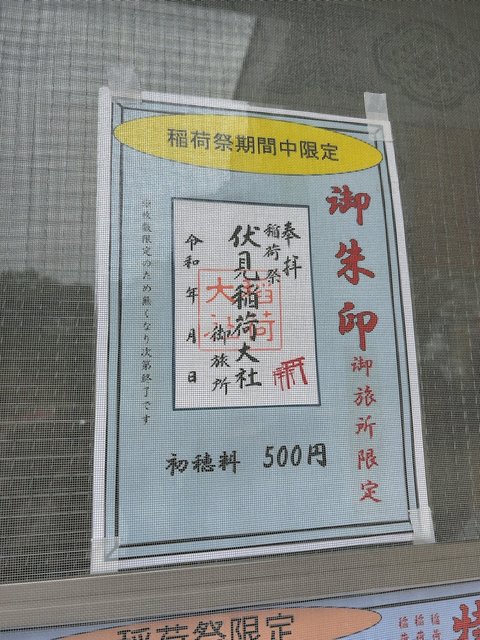 稲荷祭期間中限定
御朱印 御旅所限定
奉拝
稲荷祭
伏見稲荷大社
御旅所
令和 年 月 日
稲荷
大社
枚数限定のため無くなり次第終了です
初穂料 500円
稲荷祭限定